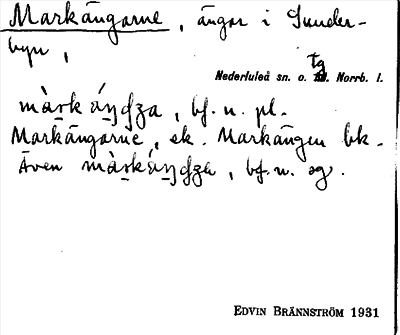 Markängarne, ängar i Sunder-
byn,
Nederluleå sn. o. tg. Norrb. l.
bf. n. pl.
Markängarne, ek. Markängen bk.
Även bf. n. sg.
EDVIN BRÄNNSTRÖM 1931